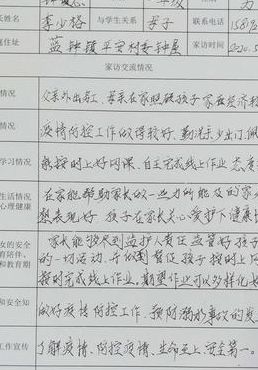 长姓名 李少格 与学生关系 母子 联系电话
庭住址 蓝钟镇平安村委钟屋 家访时间 2020.5
家访交流情况
情况 父亲外出务工，母亲在家照顾孩子家庭经济
情况 疫情防控工作做得较好，勤洗手少出门佩
学习情况 能按时上好网课，自主完成线上作业，态度
生活情况 在家能帮助家长做一些力所能及的家
心理健康 想表现好，孩子在家长关心爱护下健康
女的安全 家长能够尽到监护人责任，监管好孩子
有陪伴、 的一切活动，并做到督促孩子按时上网
和教育期 按时完成线上作业。期望作业可以多样化
和安全知 做好疫情防控工作，预防溺水事故的发
工作宣传 了解疫情、防控疫情、生命至上、安全第一。